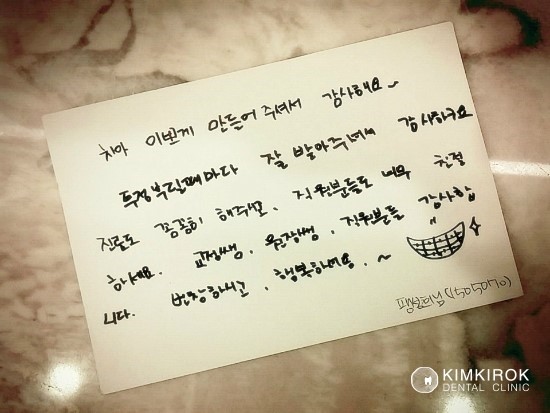 치아 이쁘게 만들어 주셔서 감사해요~
투정부릴때마다 잘 받아주셔서 감사하구요
진료도 꼼꼼히 해주시고. 직원분들도 너무 친절
하세요. 교정쌤. 원장쌤. 직원분들 감사합
니다. 번창하시고. 행복하세요. ~
(1505070)
KIMKIROK
DENTAL CLINIC